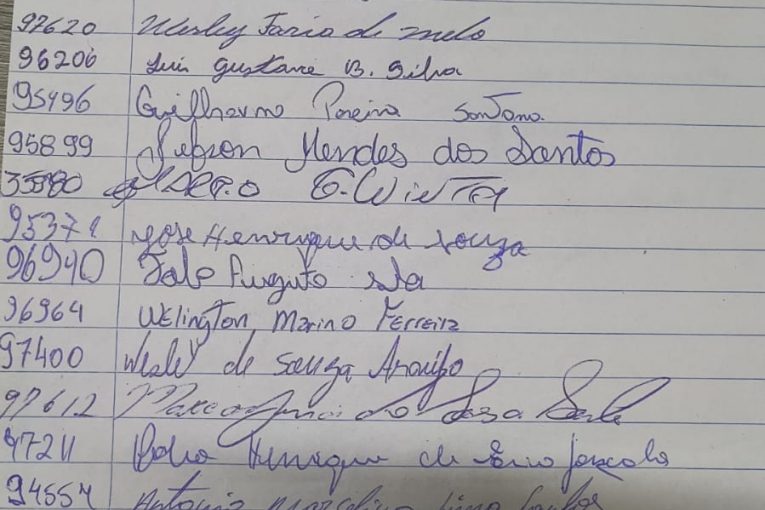 97620 Wesley Faria de melo
96206 Luis Gustavo B. Silva
95496 Guilherme Pereira Santana
95899 Jefson Mendes dos Santos
35380
95371 Jose Henrique de Souza
96940 Augusto
96964 Welington Marino Ferreira
97400 Wesley de Souza Araujo
97612
97211 Pedro Henrique de
94554 Antonio Marcelino Lima Santos